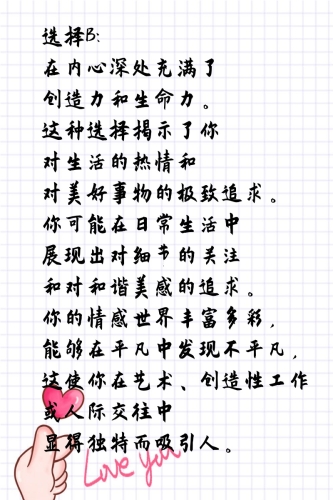 选择B:
在内心深处充满了
创造力和生命力。
这种选择揭示了你
对生活的热情和
对美好事物的极致追求。
你可能在日常生活中
展现出对细节的关注
和对和谐美感的追求。
你的情感世界丰富多彩，
能够在平凡中发现不平凡，
这使你在艺术、创造性工作
或人际交往中
显得独特而吸引人。
Love you